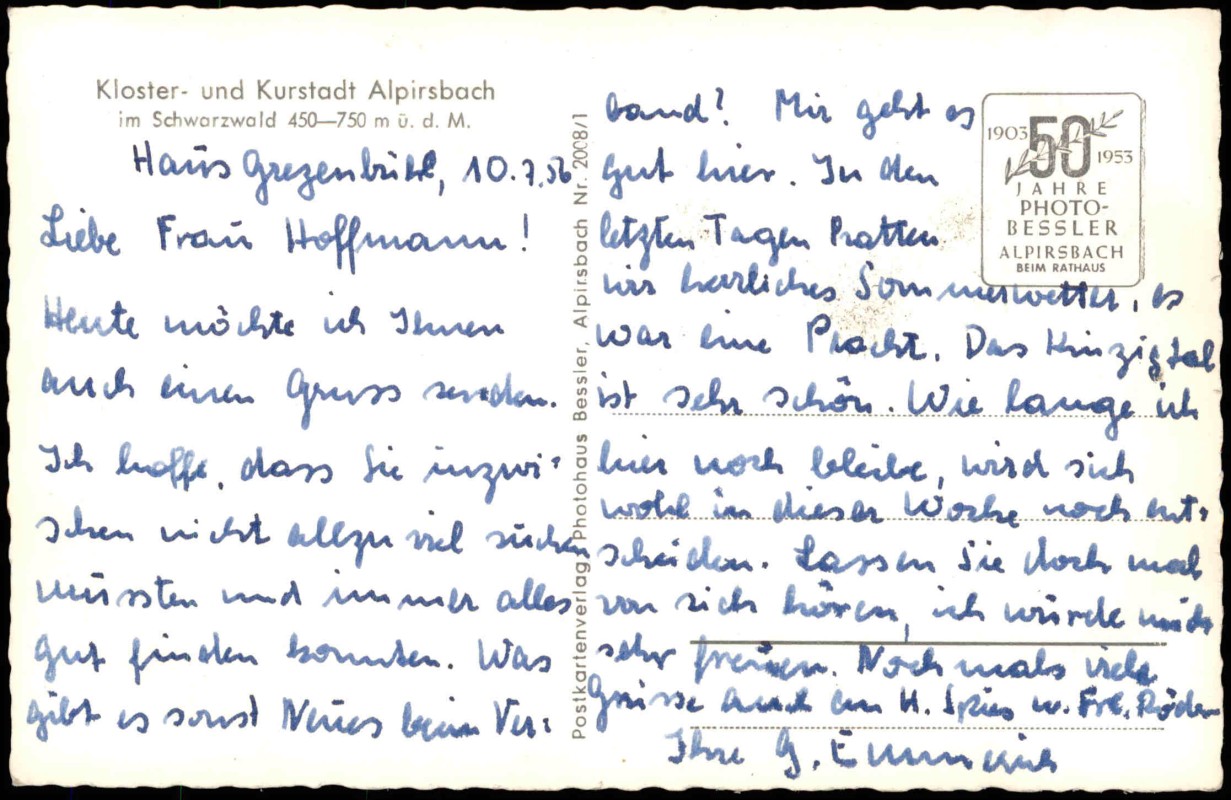 Kloster- und Kurstadt Alpirsbach
im Schwarzwald 450—750 m ü. d. M.
Haus Grezenbühl, 10.7.56
Liebe Frau Hoffmann!
Heute möchte ich Ihnen
auch einen Gruss senden.
Ich hoffe, dass Sie inzwi-
schen nicht allzu viel suchen
mussten und immer alles
gut finden konnten. Was
gibt es sonst Neues beim Ver-
Postkartenverlag Photohaus Bessler, Alpirsbach Nr. 2008/1
band? Mir geht es
gut hier. In den
letzten Tagen hatten
wir herrliches Sommerwetter, es
war eine Pracht. Das Kinzigtal
ist sehr schön. Wie lange ich
hier noch bleibe, wird sich
wohl in dieser Woche noch ent-
scheiden. Lassen Sie doch mal
von sich hören, ich würde mich
sehr freuen. Nochmals viele
Grüsse auch an H. Spies u. Frl. Röder
Ihre G. Emmerich
1903 50 1953
JAHRE
PHOTO-
BESSLER
ALPIRSBACH
BEIM RATHAUS